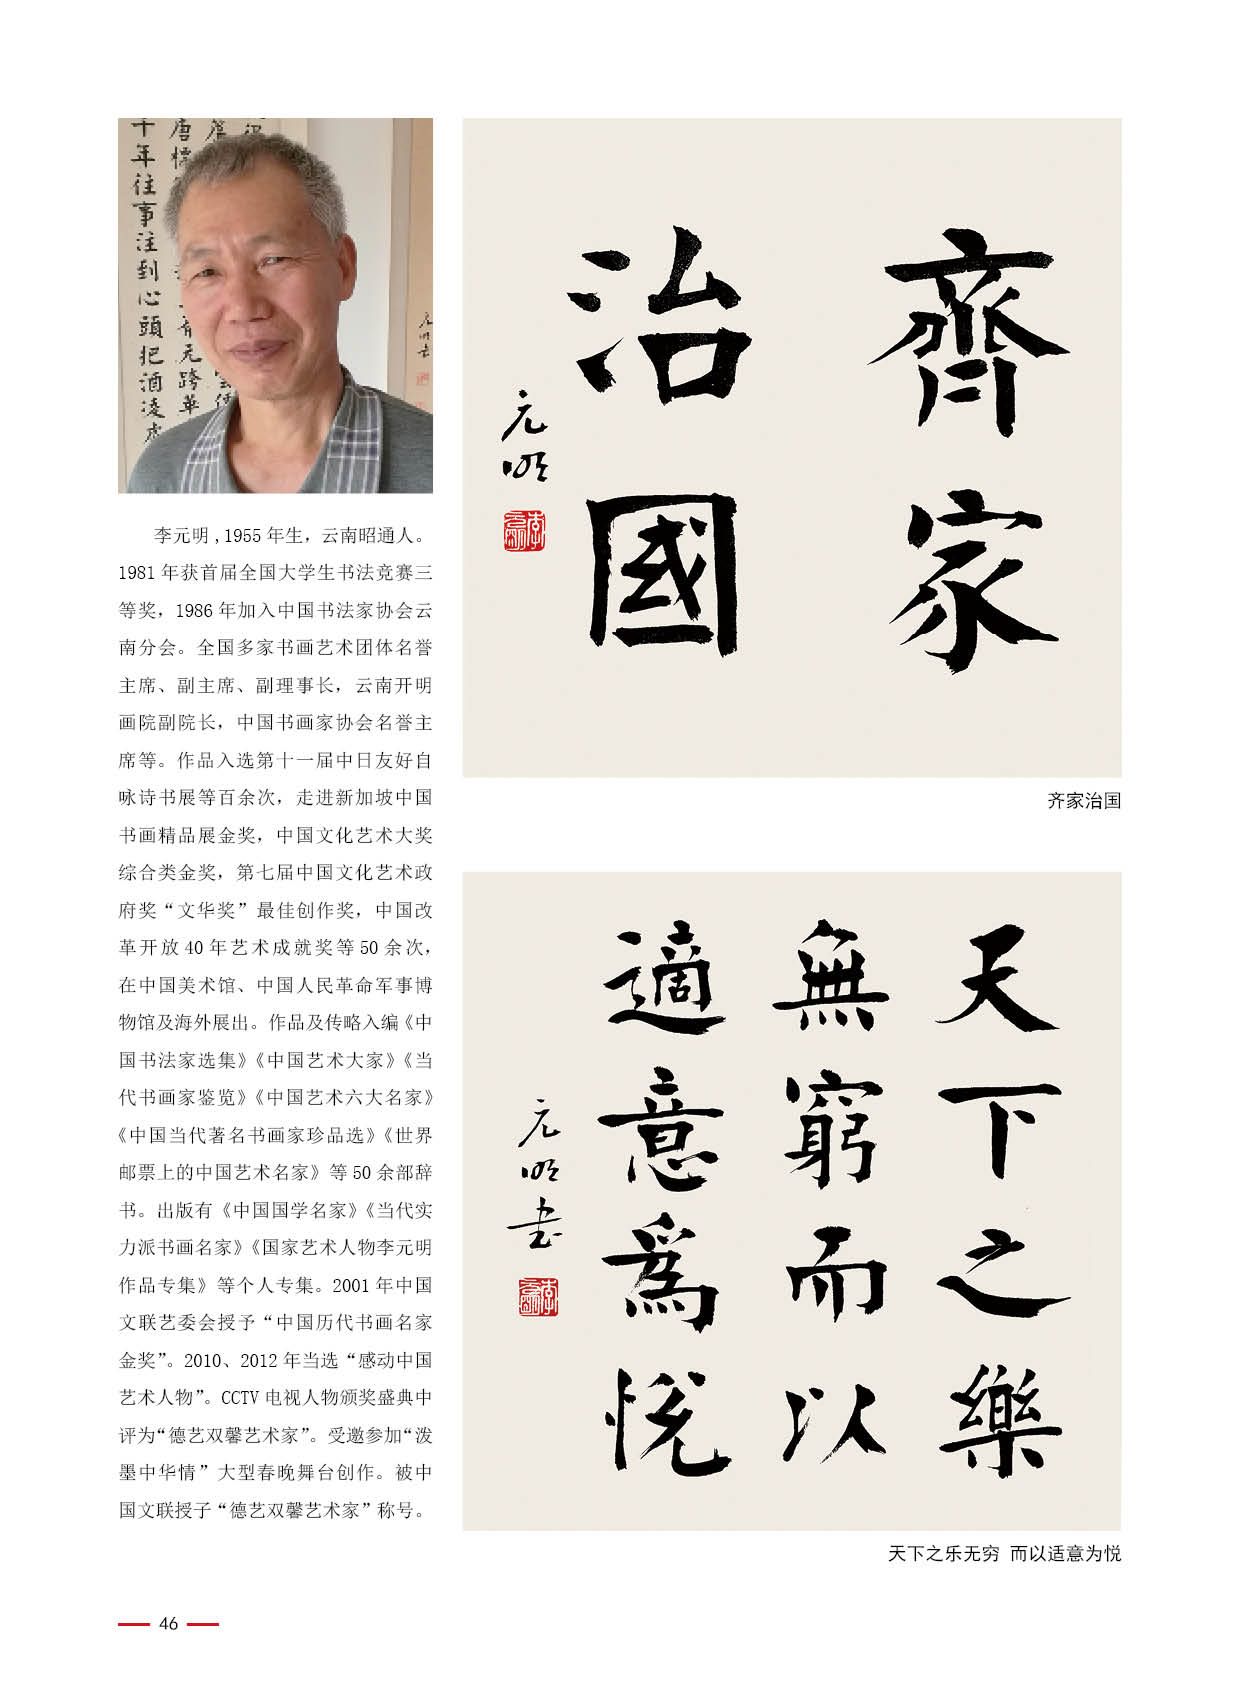 十年往事注到心頭把酒凌虚
元明書
李元明 , 1955 年生，云南昭通人。
1981 年获首届全国大学生书法竞赛三
等奖，1986 年加入中国书法家协会云
南分会。全国多家书画艺术团体名誉
主席、副主席、副理事长，云南开明
画院副院长，中国书画家协会名誉主
席等。作品入选第十一届中日友好自
咏诗书展等百余次，走进新加坡中国
书画精品展金奖，中国文化艺术大奖
综合类金奖，第七届中国文化艺术政
府奖“文华奖”最佳创作奖，中国改
革开放 40 年艺术成就奖等 50 余次，
在中国美术馆、中国人民革命军事博
物馆及海外展出。作品及传略入编《中
国书法家选集》《中国艺术大家》《当
代书画家鉴览》《中国艺术六大名家》
《中国当代著名书画家珍品选》《世界
邮票上的中国艺术名家》等 50 余部辞
书。出版有《中国国学名家》《当代实
力派书画名家》《国家艺术人物李元明
作品专集》等个人专集。2001 年中国
文联艺委会授予“中国历代书画名家
金奖”。2010、2012 年当选“感动中国
艺术人物”。CCTV 电视人物颁奖盛典中
评为“德艺双馨艺术家”。受邀参加“泼
墨中华情”大型春晚舞台创作。被中
国文联授子“德艺双馨艺术家”称号。
齊家
治國
元明
齐家治国
天下之樂
無窮而以
適意爲悅
元明书
天下之乐无穷 而以适意为悦
46